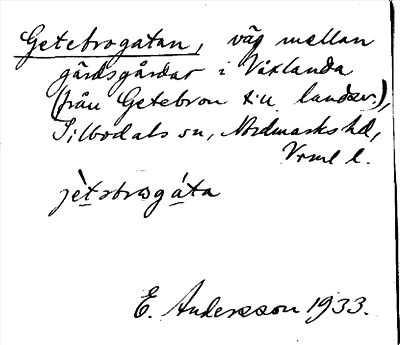 Getebrogatan, väg mellan
gärdsgårdar i Växlanda
(från Getebron till landsv.),
Silbodals sn, Nordmarks hd,
Vrml l.
jètəbrωgáta
E. Andersson 1933.